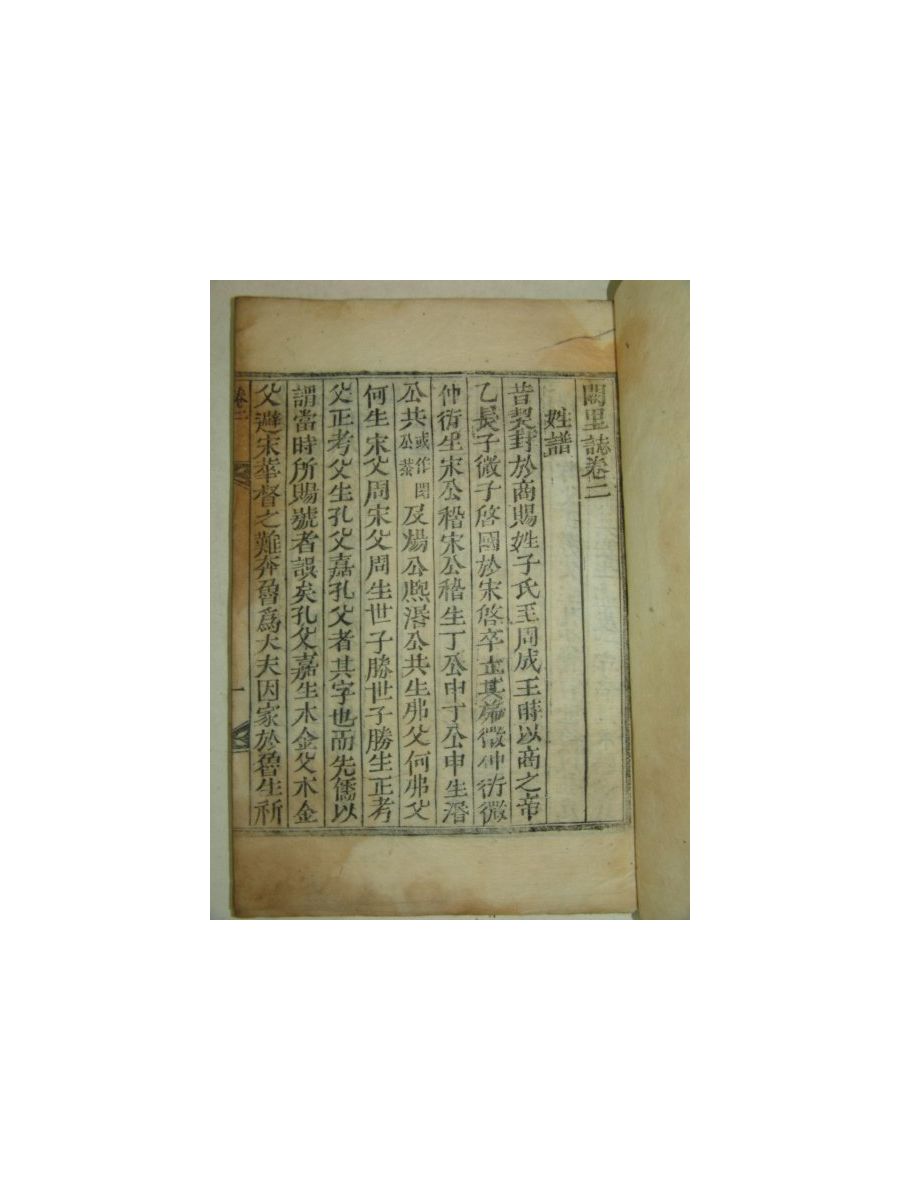 闕里誌卷二
姓譜
昔契封於商賜姓子氏至周成王時以商之帝
乙長子微子啓國於宋啓卒立其弟微仲衍微
仲衍生宋公稽宋公稽生丁公申丁公申生湣
公共或作閔公㳟及煬公熙湣公共生弗父何弗父
何生宋父周宋父周生世子勝世子勝生正考
父正考父生孔父嘉孔父者其字也而先儒以
謂當時所賜號者誤矣孔父嘉生木金父木金
父避宋華督之難奔魯爲大夫因家於魯生祈
卷二
一